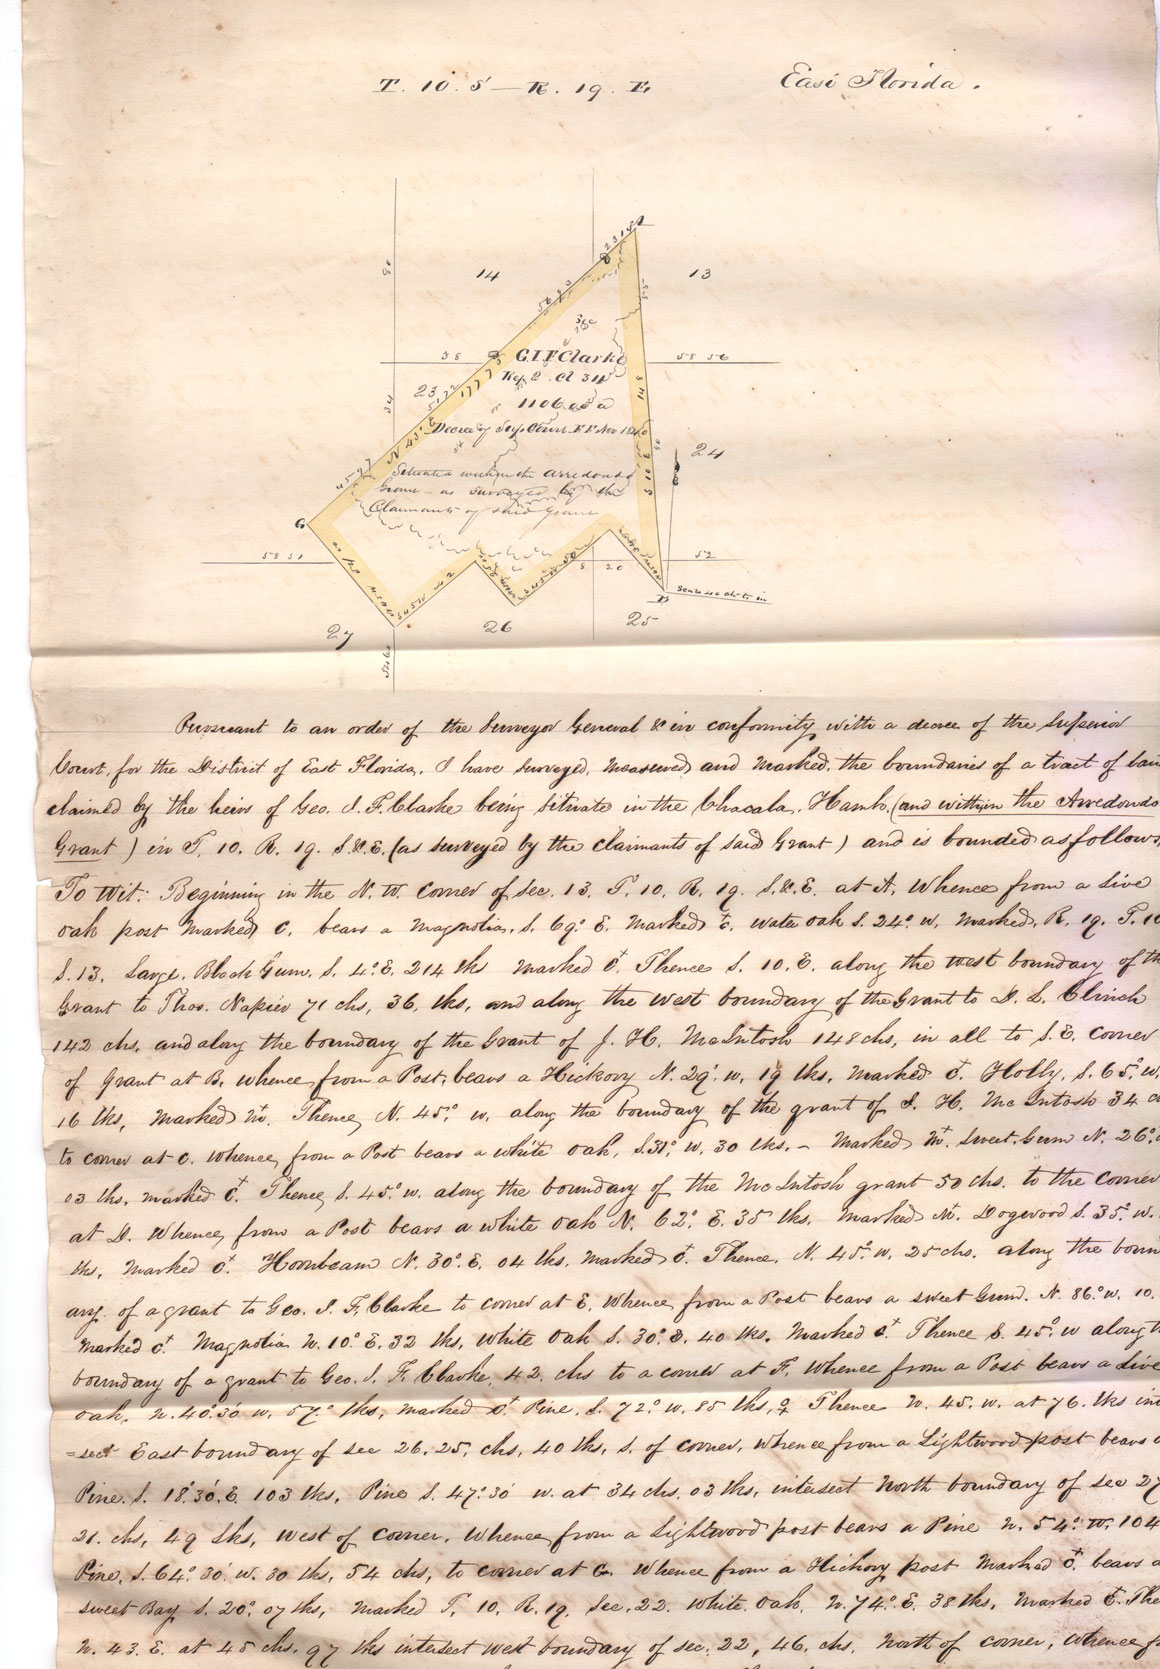 T. 10. S — R. 19. E
East Florida.
14
13
80
38
58 56
G. I F Clarke
Rep 2. Cl 34
1106
Decree of Sup. Court E F Nov 1840
23
24
34
Situated within the Arredondo
Grant as surveyed by the
Claimants of said Grant
G
58 51
52
20
B
27
26
25
Pursuant to an order of the Surveyor General & in conformity with a decree of the Superior
Court, for the District of East Florida, I have surveyed, measured and marked, the boundaries of a tract of
claimed by the heirs of Geo. I. F. Clarke being situate in the Chacala. Hamk. (and within the Arredondo
Grant) in T. 10. R. 19. S.&E. (as surveyed by the claimants of said Grant) and is bounded as follows,
To Wit: Beginning in the N. W. corner of Sec. 13. T. 10. R. 19. S.&E. at A. Whence from a Live
oak post marked C. bears a Magnolia. S. 69° E. Marked C. water oak S. 24° W. Marked, R. 19. T. 10
S. 13. Large. Black Gum. S. 4° E. 214 lks marked C. Thence S. 10. E. along the west boundary of the
Grant to Thos. Napier 71 chs, 36, lks, and along the west boundary of the Grant to D. L. Clinch
142 chs, and along the boundary of the Grant of J. H. McIntosh 148 chs, in all to S. E. corner
of Grant at B. whence from a Post, bears a Hickory N. 29° W. 19 lks. Marked C. Holly. S. 65° W.
16 lks, marked M. Thence, N. 45° W. along the boundary of the grant of J. H. McIntosh 34
to corner at C. Whence, from a Post bears a white oak, S. 31° W. 30 lks. - Marked M. Sweet Gum N. 26°
03 lks. marked C. Thence, S. 45° W. along the boundary of the McIntosh grant 50 chs. to the corner
at D. Whence, from a Post bears a white oak N. 62° E. 35 lks. Marked M. Dogwood S. 35° W.
lks, marked C. Hornbeam N. 30° E. 04 lks, marked C. Thence, N. 45° W. 25 chs. along the boun
ary. of a grant to Geo. I. F. Clarke to corner at E. Whence, from a Post bears a sweet Gum. N. 86° W. 10.
marked C. Magnolia N. 10° E. 32 lks, white oak S. 30° E. 40 lks. Marked C. Thence S. 45° W along
boundary of a grant to Geo. I. F. Clarke, 42, chs to a corner at F. Whence from a Post bears a Live
oak. N. 40° 30' W. 57 lks, marked C Pine. S. 72° W. 85 lks, Thence N. 45. W. at 76. lks in
=sect East boundary of sec 26. 25, chs, 40 lks, S. of corner, Whence from a Lightwood post bears
Pine. S. 18° 30' E 103 lks. Pine S. 47° 30 W. at 34 chs. 03 lks, intersect North boundary of sec 27
21. chs, 49 Lks, West of corner. Whence from a Lightwood post bears a Pine N. 54° W. 104
Pine. S. 64° 30' W. 30 lks, 54 chs, to corner at G. Whence from a Hickory post Marked C. bears a
sweet Bay S. 20° 07 lks, Marked T, 10. R. 19. Sec. 22. White Oak. N. 74° E. 38 lks, Marked C.
N. 43. E. at 45 chs. 97 lks intersect west boundary of sec. 22, 46. chs. North of corner, Whence